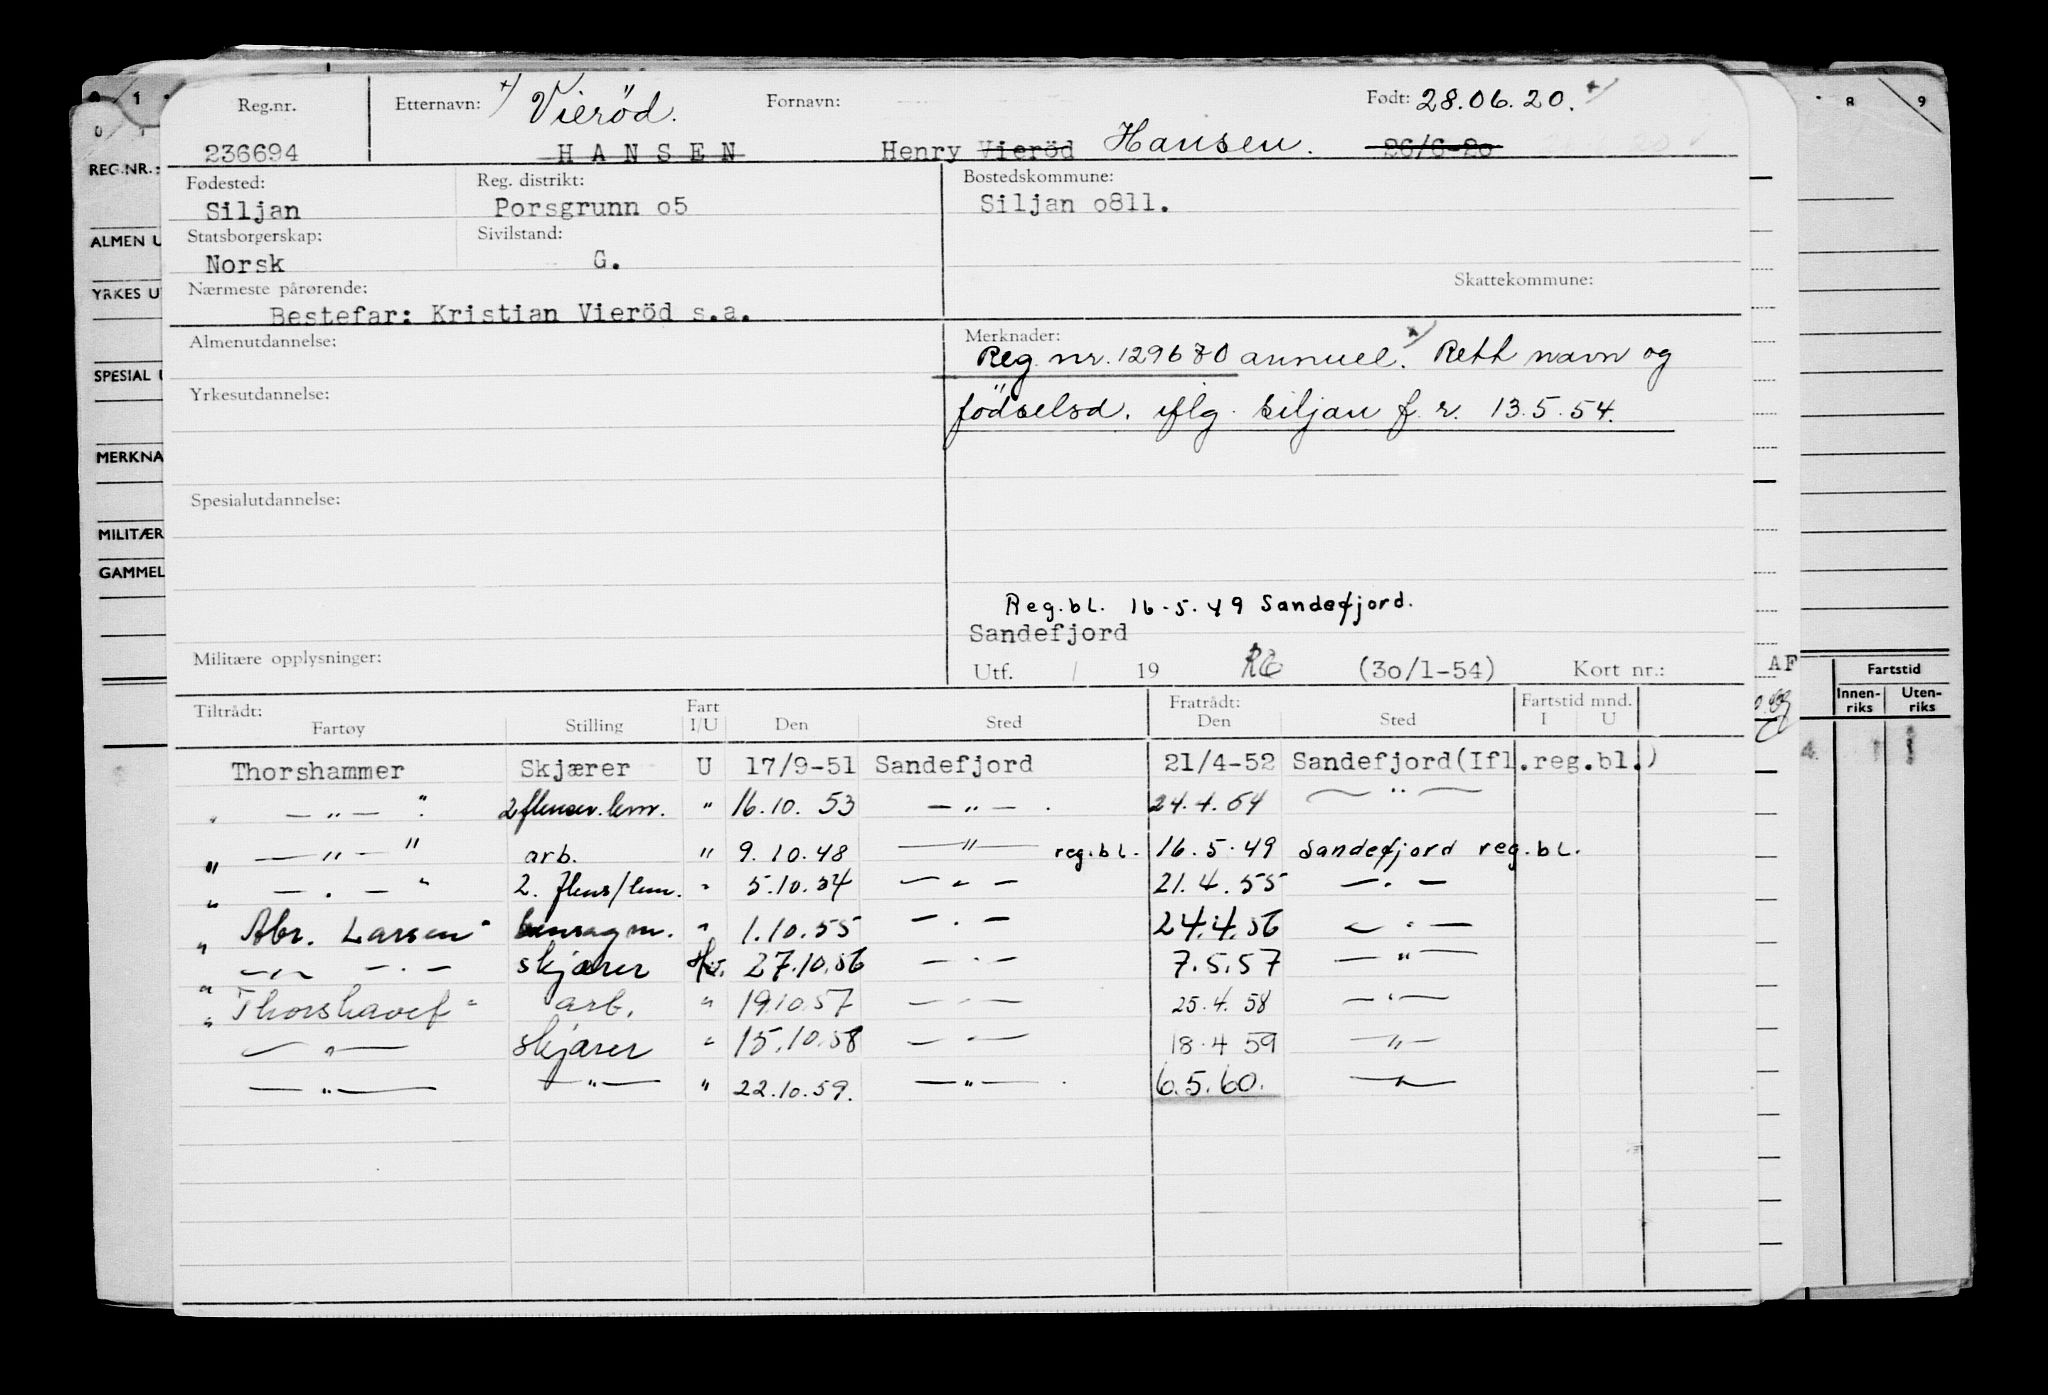 Reg.nr. Etternavn: x/ Vieröd. Fornavn: Født: 28.06.20. x/
236694 HANSEN Henry Vieröd Hansen. 26/6-20
Fødested: Reg. distrikt: Bostedskommune:
Siljan Porsgrunn o5 Siljan o811.
Statsborgerskap: Sivilstand:
Norsk G.
Nærmeste pårørende: Skattekommune:
Bestefar: Kristian Vieröd s.a.
Almenutdannelse: Merknader:
Reg nr. 129670 annuel. x/ Rett navn og
Yrkesutdannelse: födselsd. iflg. Siljan f. r. 13.5.54.
Spesialutdannelse:
Reg.bl. 16-5.49 Sandefjord.
Sandefjord
Militære opplysninger: Utf. / 19 (3o/1-54) Kort nr.:
Tiltrådt: Fart Fratrådt: Fartstid mnd.
Fartøy Stilling I/U Den Sted Den Sted I U
Thorshammer Skjærer U 17/9-51 Sandefjord 21/4-52 Sandefjord(Ifl.reg.bl.)
" — " — " 2 flenser.lem. " 16.10.53 — " — . 24.4.54 — " —
" — " — " arb. " 9.10.48 — " — reg.bl. 16.5.49 Sandefjord reg.bl.
" — " — " 2. flens/lem. " 5.10.54 — " — 21.4.55 — " —
" Abr. Larsen " bensagm. " 1.10.55 — " — 24.4.56 — " —
" — " — — " — skjærer 27.10.56 — " — 7.5.57 — " —
" Thorshavet " arb. " 19.10.57 — " — 25.4.58 — " —
" — " — skjærer " 15.10.58 — " — 18.4 59 — " —
— " — — " — " 22.10.59. — " — . 6.5.60. — " —
REG.NR.:
ALMEN U
YRKES U
SPESIAL U
MERKNA
MILITÆR
GAMMEL
0 1
8 9
AF
Fartstid
Innen-riks Uten-riks